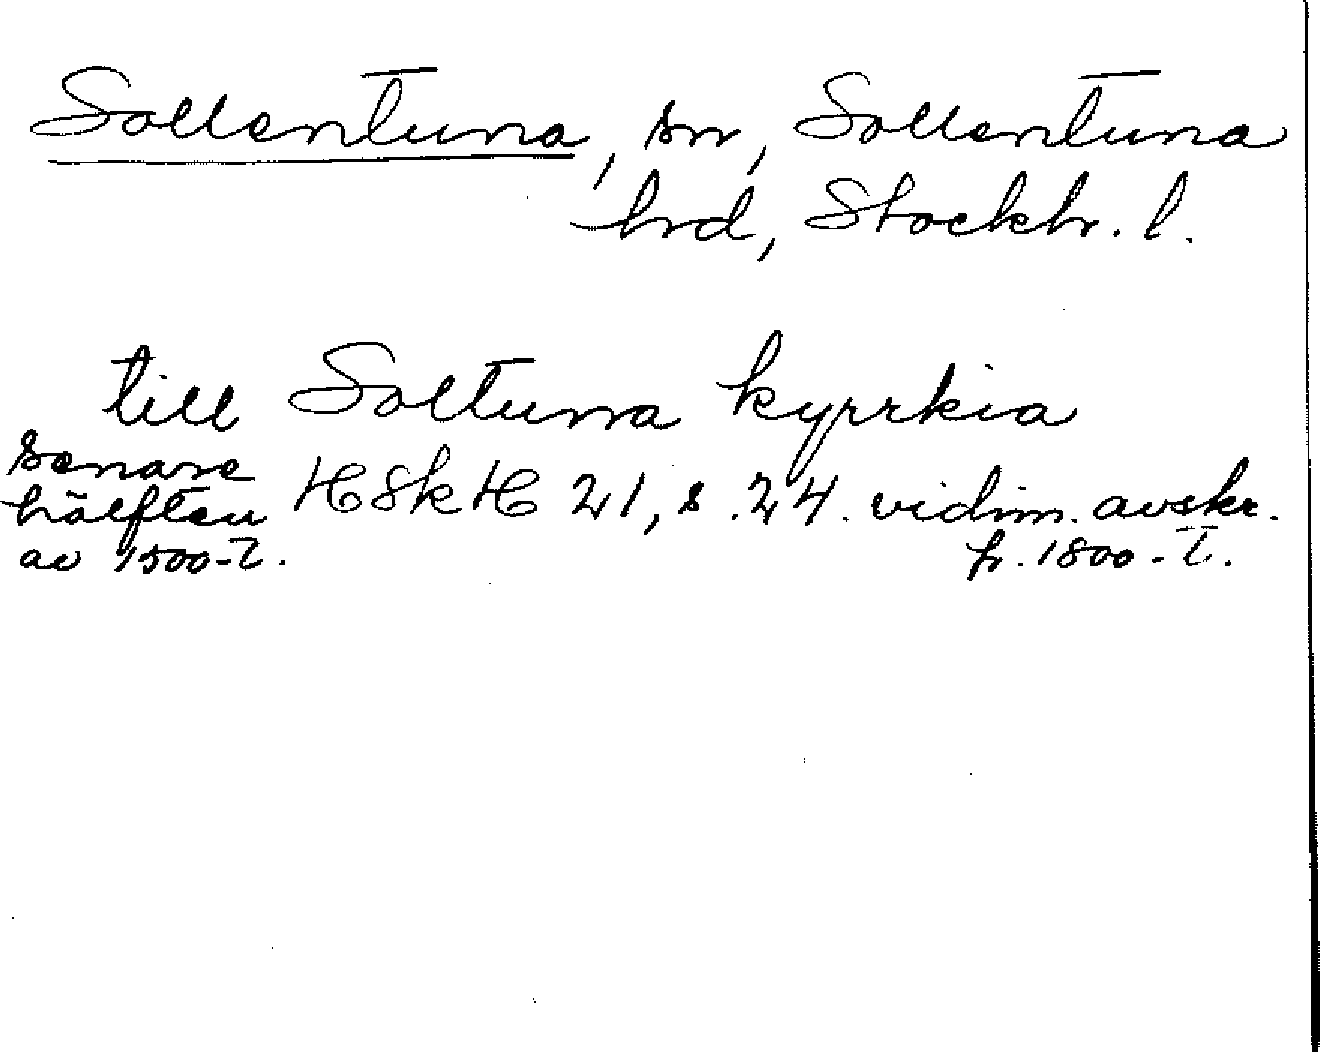 Sollentuna, sn, Sollentuna
hrd, Stockh. l.
till Soltuna kyrrkia
senare
hälften HSkH 21, s. 24. vidim. avskr.
av 1500-t. fr. 1800-t.